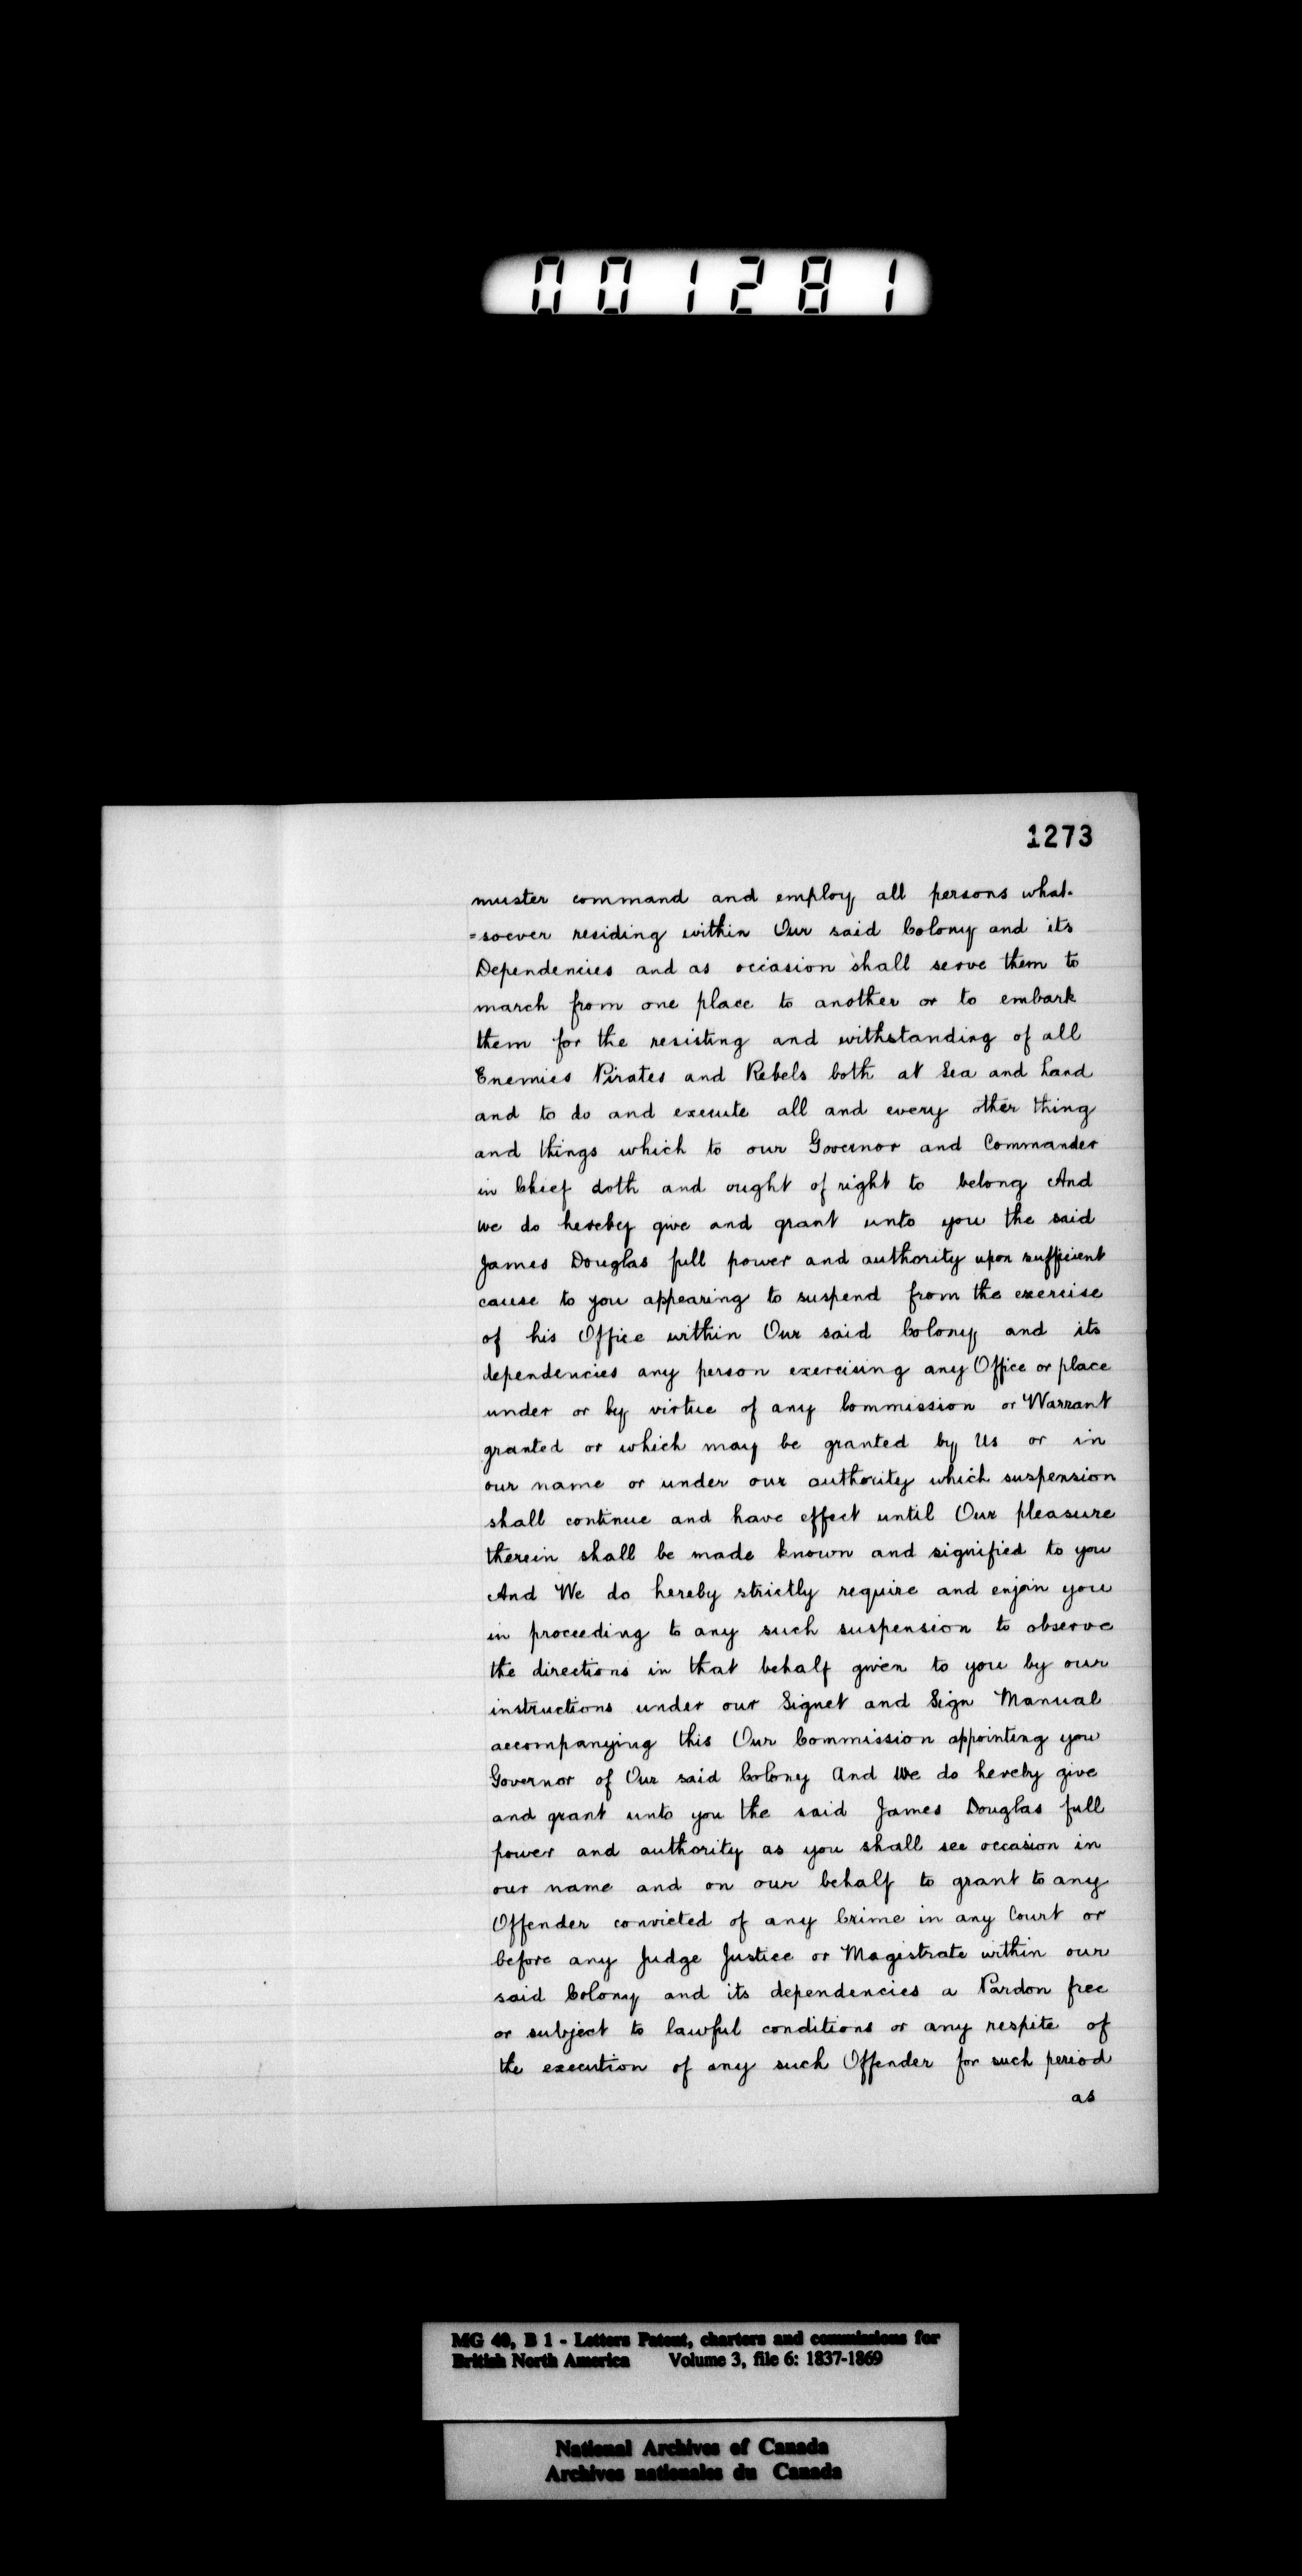 001281
1273
muster command and employ all persons what-
=soever residing within Our said Colony and its
Dependencies and as occasion shall serve them to
march from one place to another or to embark
them for the resisting and withstanding of all
Enemies Pirates and Rebels both at Sea and Land
and to do and execute all and every other thing
and things which to our Governor and Commander
in Chief doth and ought of right to belong And
we do hereby give and grant unto you the said
James Douglas full power and authority upon sufficient
cause to you appearing to suspend from the exercise
of his Office within Our said Colony and its
dependencies any person exercising any Office or place
under or by virtue of any Commission or Warrant
granted or which may be granted by Us or in
our name or under our authority which suspension
shall continue and have effect until Our pleasure
therein shall be made known and signified to you
And We do hereby strictly require and enjoin you
in proceeding to any such suspension to observe
the directions in that behalf given to you by our
instructions under our Signet and Sign Manual
accompanying this Our Commission appointing you
Governor of Our said Colony And We do hereby give
and grant unto you the said James Douglas full
power and authority as you shall see occasion in
our name and on our behalf to grant to any
Offender convicted of any Crime in any Court or
before any Judge Justice or Magistrate within our
said Colony and its dependencies a Pardon free
or subject to lawful conditions or any respite of
the execution of any such Offender for such period
as
MG 40, B 1 - Letters Patent, charters and commissions for
British North America Volume 3, file 6: 1837-1869
National Archives of Canada
Archives nationales du Canada